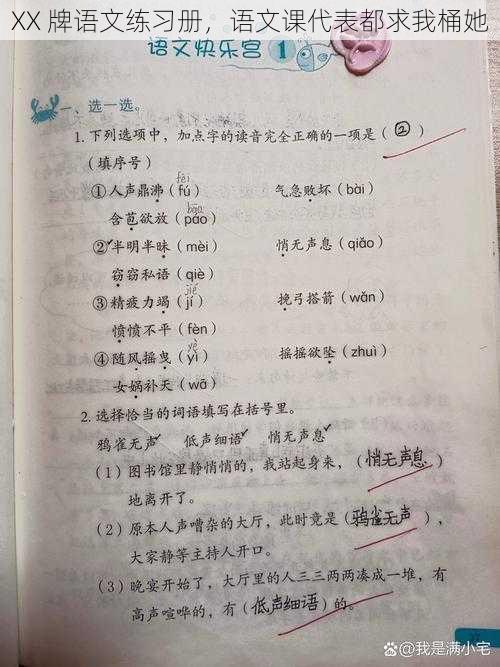 XX 牌语文练习册，语文课代表都求我桶她
语文快乐宫 1
一、选一选。
1. 下列选项中，加点字的读音完全正确的一项是（ ② ）
（填序号）
fèi
①人声鼎沸（fú） 气急败坏（bài）
bāo
含苞欲放（pāo）
②半明半昧（mèi） 悄无声息（qiǎo）
窃窃私语（qiè）
jié
③精疲力竭（jí） 挽弓搭箭（wǎn）
愤愤不平（fèn）
yè
④随风摇曳（yì） 摇摇欲坠（zhuì）
女娲补天（wā）
2. 选择恰当的词语填写在括号里。
鸦雀无声 低声细语 悄无声息
（1）图书馆里静悄悄的，我站起身来，（悄无声息）
地离开了。
（2）原本人声嘈杂的大厅，此时竟是（鸦雀无声），
大家静等主持人开口。
（3）晚宴开始了，大厅里的人三三两两凑成一堆，有
高声喧哗的，有（低声细语）的。
@我是满小宅